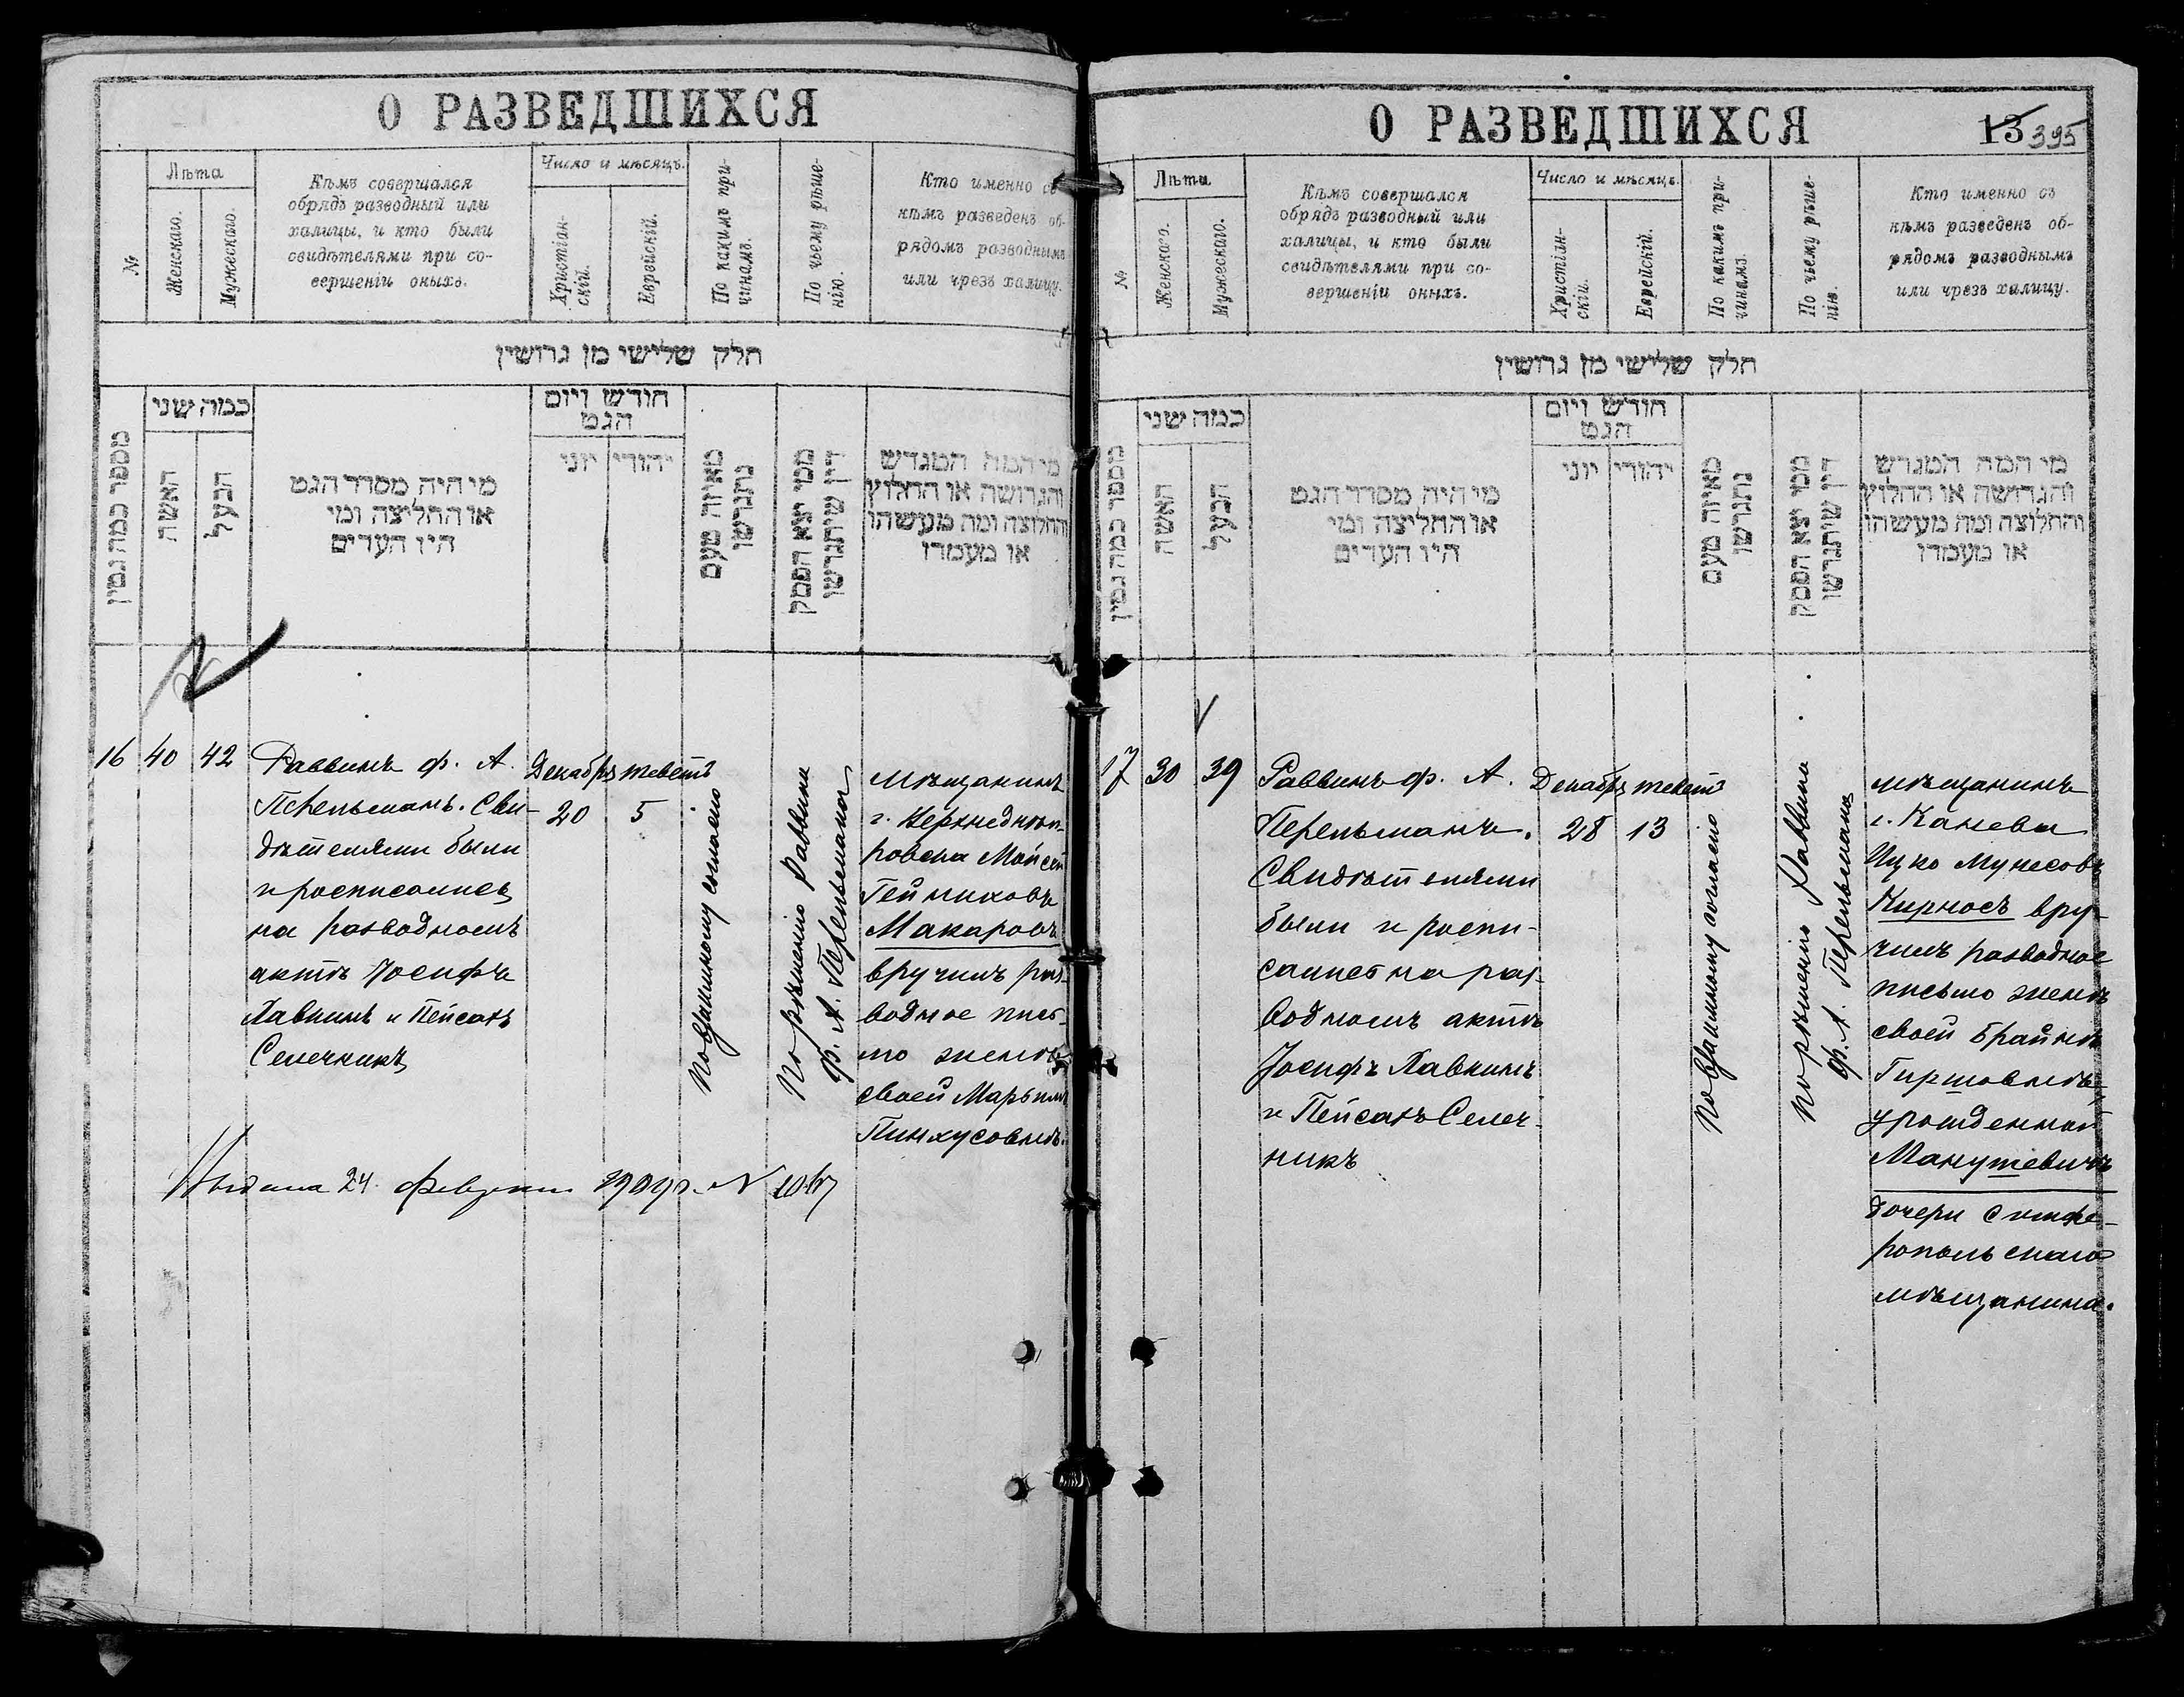 О РАЗВЕДШИХСЯ
№
Лѣта
Женскаго.
Мужескаго.
Кѣмъ совершался
обрядъ разводный или
халицы, и кто были
свидѣтелями при со-
вершеніи оныхъ.
Число и мѣсяцъ.
Христіан-
скій.
Еврейскій.
По какимъ при-
чинамъ.
По чьему рѣше-
нію.
Кто именно съ
кѣмъ разведенъ об-
рядомъ разводнымъ
или чрезъ халицу.
חלק שלישי מן גרושין
מספר כמה גטין
כמה שני
האשה
הבעל
מי היה מסדר הגט
או החליצה ומי
היו העדים
חודש ויום
הגט
יהודי יוני
מאיזה טעם
נתגרשו
ממי יצא הפסק
דין שיתגרשו
מי המה המגרש
והגרושה או החלוץ
והחלוצה ומה מעשהו
או מעמדו
16 40 42
Раввинъ ф. А.
Перельманъ. Сви-
дѣтелями были
и росписались
на разводномъ
актѣ Іосифъ
Хавкинъ и Пейсахъ
Селечникъ
Декабрь Теветъ
20 5
По взаимному согласію
По рѣшенію Раввина
ф. А. Перельмана
мѣщанинъ
г. Верхнеднѣп-
ровска Мойсей
Гейниховъ
Макаровъ
вручилъ раз-
водное пись-
мо женѣ
своей Марьямѣ
Пинхусовнѣ.
Выдана 24 февраля 1909 г. N
О РАЗВЕДШИХСЯ
13 395
№
Лѣта
Женскаго.
Мужескаго.
Кѣмъ совершался
обрядъ разводный или
халицы, и кто были
свидѣтелями при со-
вершеніи оныхъ.
Число и мѣсяцъ.
Христіан-
скій.
Еврейскій.
По какимъ при-
чинамъ.
По чьему рѣше-
нію.
Кто именно съ
кѣмъ разведенъ об-
рядомъ разводнымъ
или чрезъ халицу.
חלק שלישי מן גרושין
מספר כמה גטין
כמה שני
האשה
הבעל
מי היה מסדר הגט
או החליצה ומי
היו העדים
חודש ויום
הגט
יהודי יוני
מאיזה טעם
נתגרשו
ממי יצא הפסק
דין שיתגרשו
מי המה המגרש
והגרושה או החלוץ
והחלוצה ומה מעשהו
או מעמדו
17 30 39
Раввинъ ф. А.
Перельманъ.
Свидѣтелями
были и роспи-
сались на раз-
водномъ актѣ
Іосифъ Хавкинъ
и Пейсахъ Селеч-
никъ
Декабрь Теветъ
28 13
По взаимному согласію
По рѣшенію Раввина
ф. А. Перельмана
мѣщанинъ
г. Канева
Ицко Мунесовъ
Кирносъ вру-
чилъ разводное
письмо женѣ
своей Брайнѣ
Гиршовнѣ
урожденной
Манушевичъ
дочери симфе-
ропольскаго
мѣщанина.